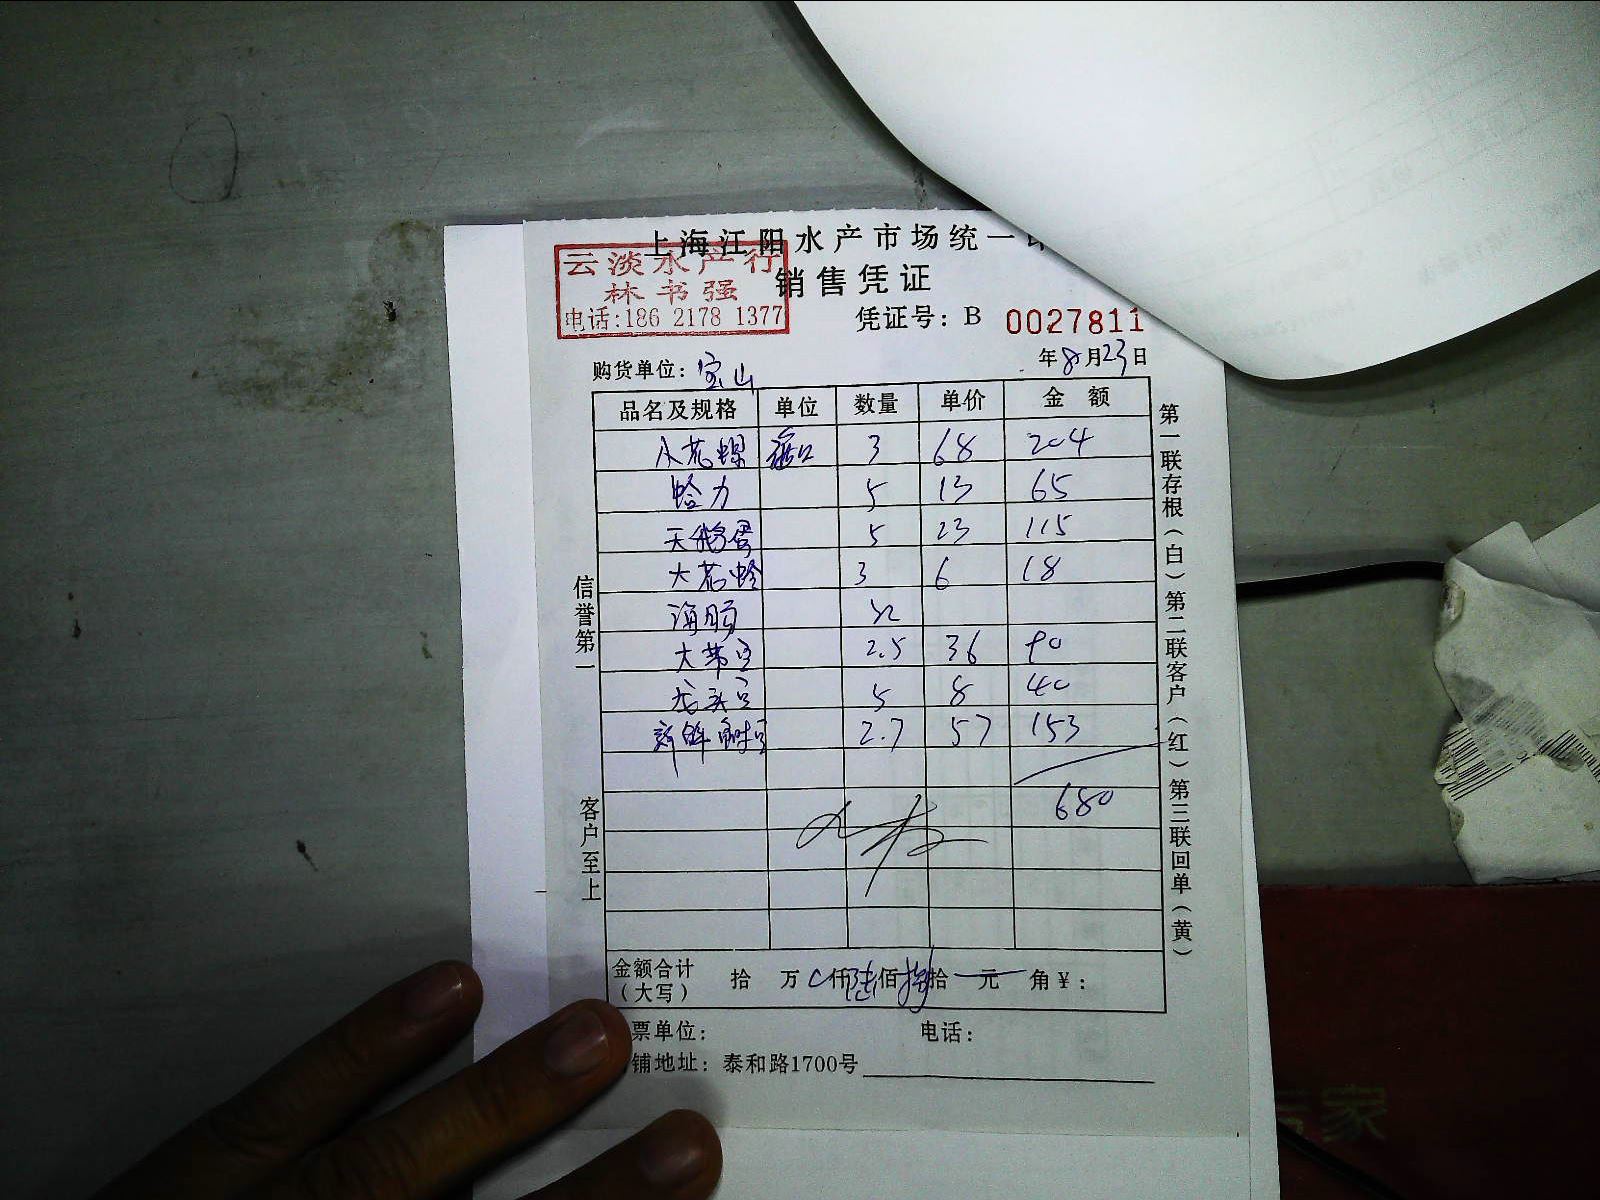 上海江阳水产市场统一
云淡水产行
林书强
电话:186 2178 1377
销售凭证
凭证号: B 0027811
购货单位: 宝山
年8月23日
品名及规格 单位 数量 单价 金额
小花螺 3 68 204
蛤力 5 13 65
天鹅蛋 5 23 115
大花蛤 3 6 18
海肠
大带子 2.5 36 90
龙头 5 8 40
新鲜 2.7 57 153
680
金额合计
(大写)
拾 万 仟陆佰捌拾 元 角¥:
票单位: 电话:
铺地址: 泰和路1700号
信誉第一
客户至上
第一联存根(白)第二联客户(红)第三联回单(黄)